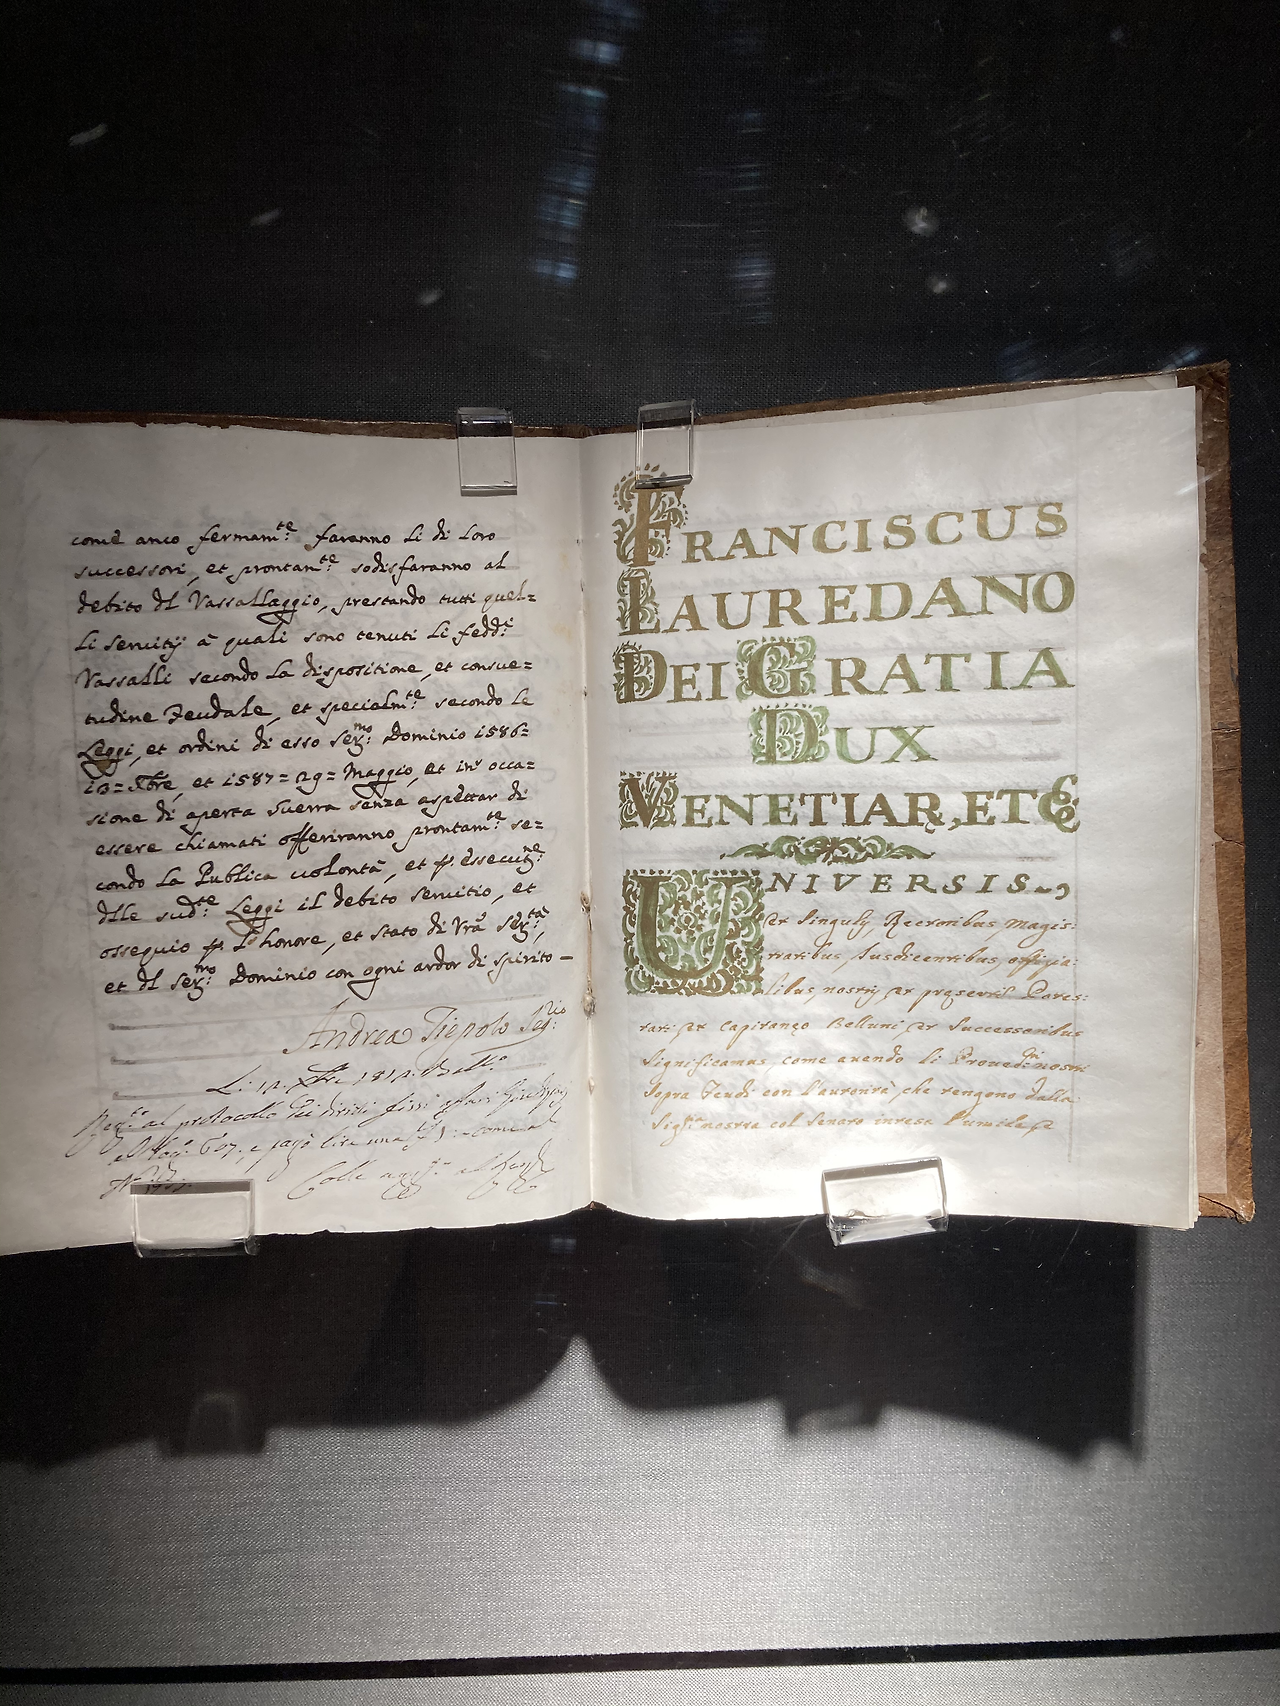 come anco fermam.te faranno li di loro
successori, et prontam.te sodisfaranno al
debito dl Vassallaggio, prestando tutti quel=
li servitij à quali sono tenuti li fedd.i
Vassalli secondo la dispositione, et consue=
tudine Feudale, et specialm.te secondo le
Leggi, et ordini di esso Ser.mo Dominio 1586=
13= Xbre, et 1587= 29= Maggio, et in occa=
sione di aperta Guerra senza aspettar di
essere chiamati offeriranno prontam.te se=
condo la Publica volontà, et p. essecut.ne
dlle sud.te Leggi il debito servitio, et
ossequio p. l'honore, et stato di Vrã Ser.tà,
et dl Ser.mo Dominio con ogni ardor di spirito—
Andrea Tiepolo Seg.rio
al protocollo
e pagò lire una
FRANCISCUS
LAUREDANO
DEI GRATIA
DUX
VENETIAR, ETC
UNIVERSIS
et singulis Rectoribus Magis:
tratibus, Jusdicentibus, officia:
libus nostris et presertĩ Potes:
tati et Capitaneo Belluni et Successoribus
Significamus, come avendo li Proved.ri nostri
sopra Feudi con l'auttorità, che tengono dalla
Sig.ria nostra col Senato intesa l'umile